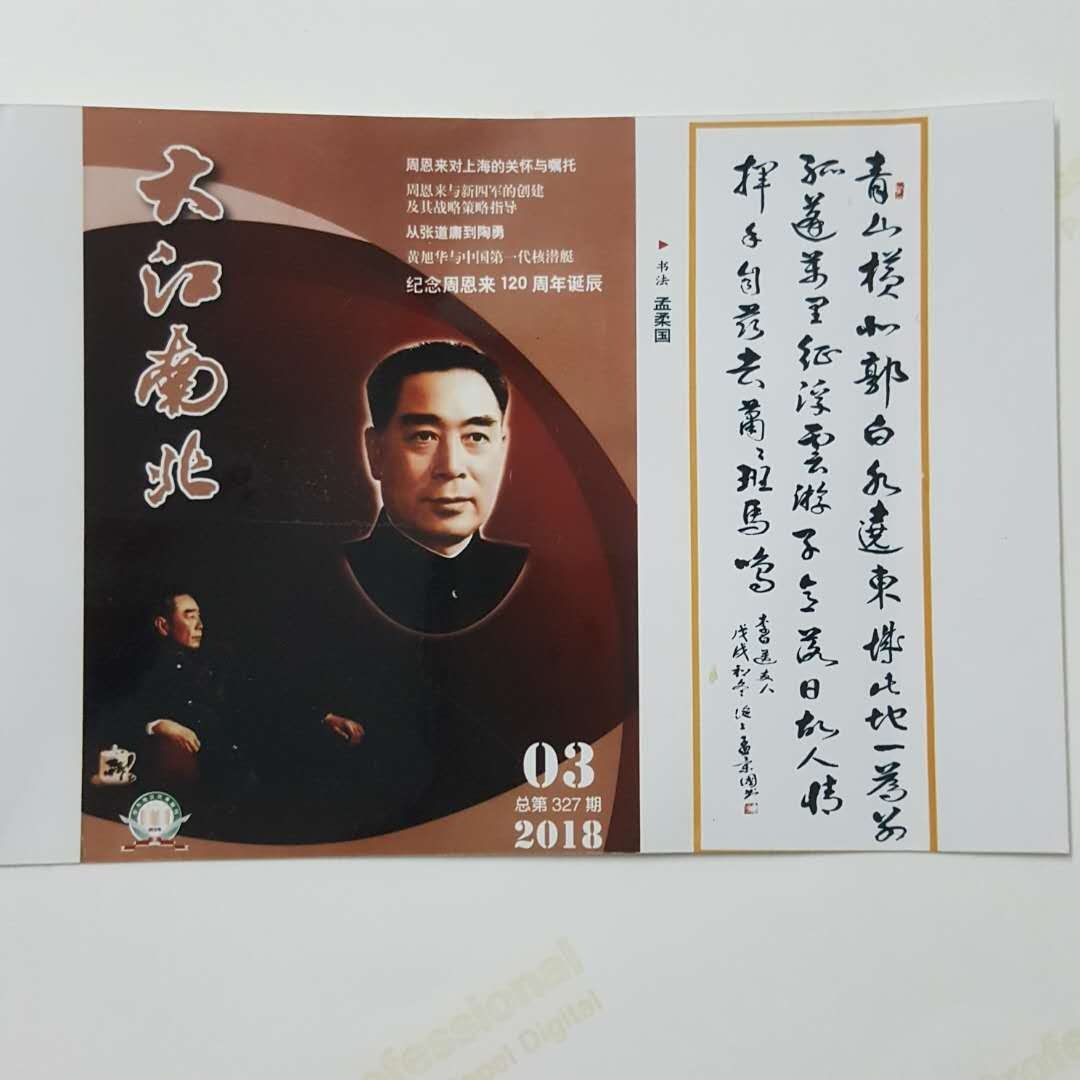 大江南北
周恩来对上海的关怀与嘱托
周恩来与新四军的创建
及其战略策略指导
从张道庸到陶勇
黄旭华与中国第一代核潜艇
纪念周恩来 120 周年诞辰
03
总第 327 期
2018
书法 孟柔国
青山横北郭白水遶東城此地一為别
孤蓬萬里征浮雲游子意落日故人情
揮手自兹去蕭〻班馬鳴
李白送友人
戊戌 孟柔国书
Professional
Digital